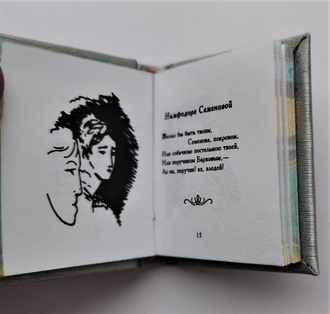 Нимфодоре Семеновой
Желал бы быть твоим,
Семенова, покровом,
Или собачкою постельною твоей,
Или поручиком Барковым, —
Ах он, поручик! ах, злодей!
15